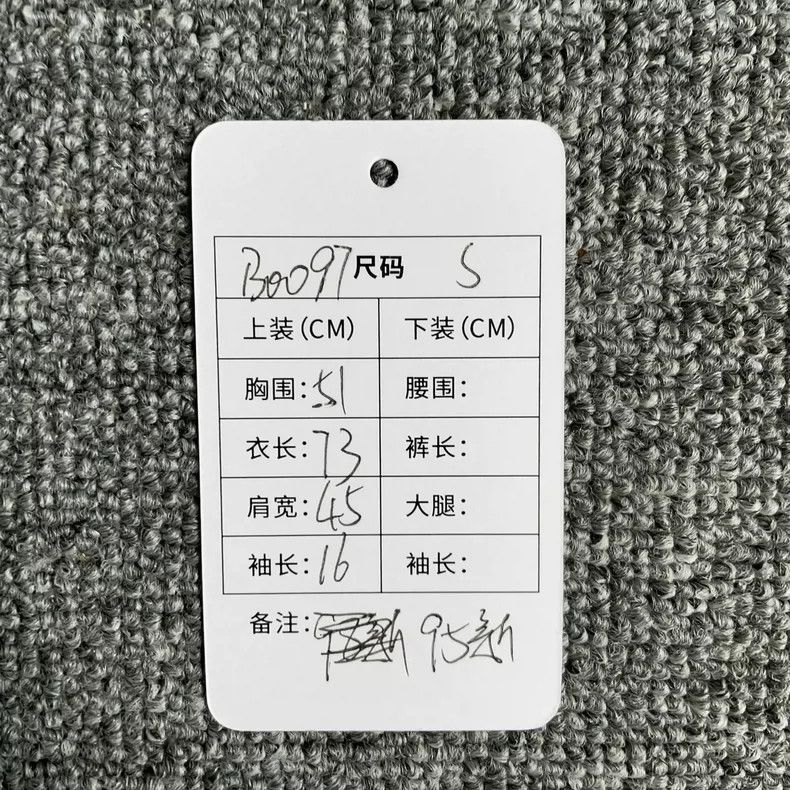 B0097 尺码 S
上装(CM) 下装(CM)
胸围: 51 腰围:
衣长: 73 裤长:
肩宽: 45 大腿:
袖长: 16 袖长:
备注: 95新